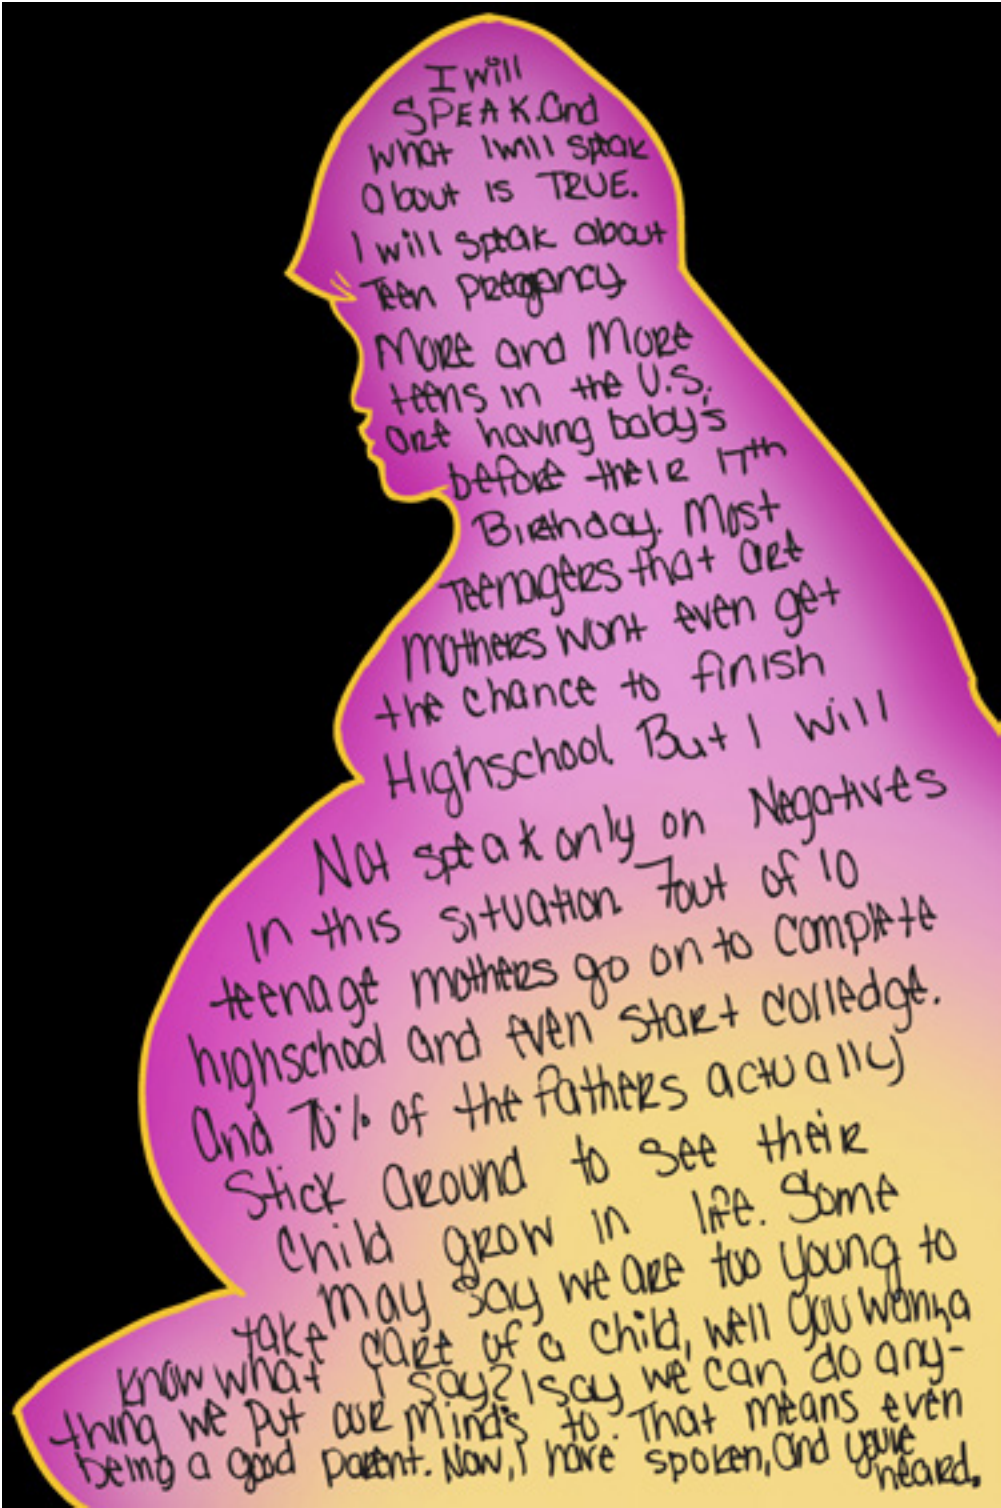 I will
SPEAK. And
what I will speak
About is TRUE.
I will speak about
Teen Pregancy.
More and More
teens in the U.S.
are having baby's
before their 17th
Birthday. Most
Teenagers that are
Mothers wont even get
the chance to finish
Highschool. But I will
Not speak only on Negatives
in this situation. 7out of 10
teenage mothers go on to complete
highschool and even start colledge.
And 70% of the Fathers actually
Stick Around to see their
Child grow in life. Some
may say we are too young to
take care of a child, well you wanna
know what I say? I say we can do any-
thing we put our mind's to. That means even
being a good parent. Now, I have spoken, and you're
heard.